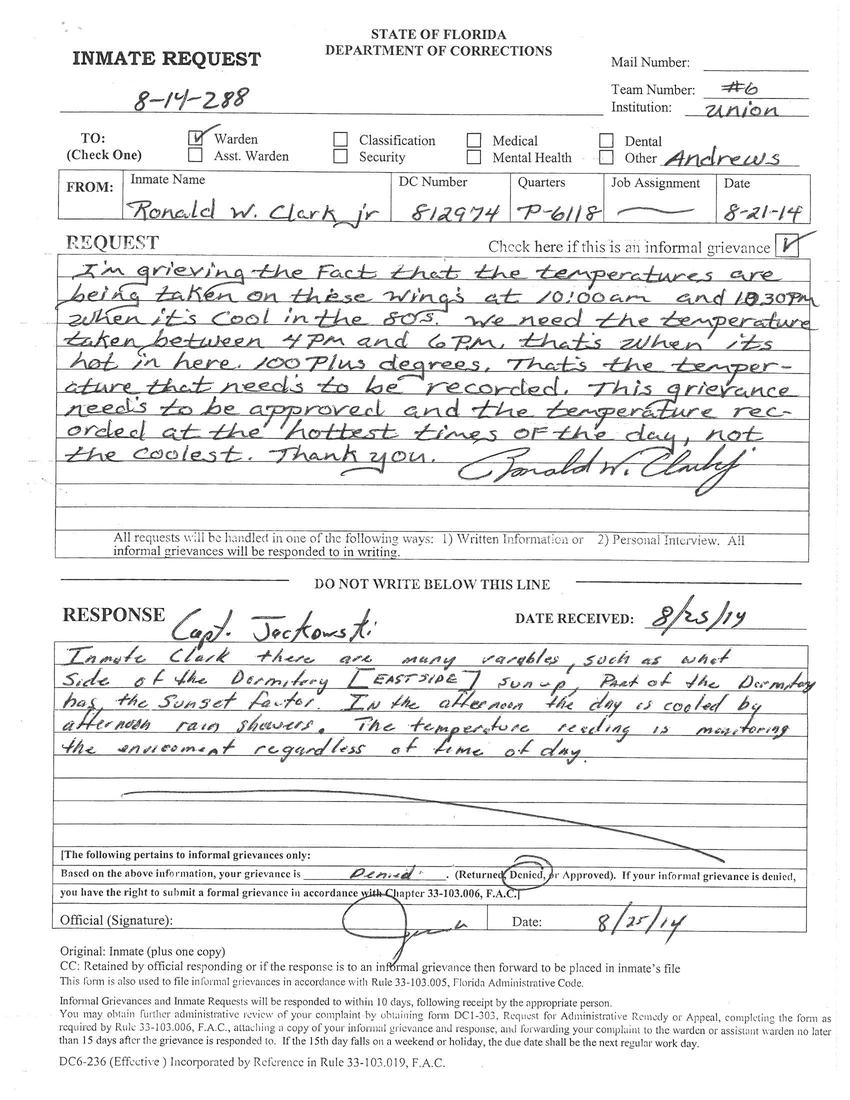 STATE OF FLORIDA
DEPARTMENT OF CORRECTIONS
INMATE REQUEST
Mail Number:
8-14-288
Team Number: #6
Institution: Union
TO:
(Check One)
Warden
Classification
Medical
Dental
Asst. Warden
Security
Mental Health
Other Andrews
FROM:
Inmate Name
DC Number
Quarters
Job Assignment
Date
Ronald W. Clark jr
812974
P-6118
8-21-14
REQUEST
Check here if this is an informal grievance
I'm grieving the Fact that the temperatures are
being taken on these wing's at 10:00am and 10:30PM
when it's Cool in the 80's. We need the temperature
taken between 4PM and 6PM, that's when its
hot in here. 100 Plus degrees. That's the temper-
ature that need's to be recorded. This grievance
need's to be approved and the temperature rec-
orded at the hottest times OF the day, not
the coolest. Thank you. Ronald W. Clark jr
All requests will be handled in one of the following ways: 1) Written Information or 2) Personal Interview. All
informal grievances will be responded to in writing.
DO NOT WRITE BELOW THIS LINE
RESPONSE Capt. Jackowski
DATE RECEIVED: 8/25/14
Inmate Clark there are many varables, such as what
Side of the Dormitory [EAST SIDE] sun up, Part of the Dormitory
has the Sunset factor. In the afternoon the day is cooled by
afternoon rain showers. The temperature reading is monitoring
the enviroment regardless of time of day.
[The following pertains to informal grievances only:
Based on the above information, your grievance is Denied. (Returned, Denied, or Approved). If your informal grievance is denied,
you have the right to submit a formal grievance in accordance with Chapter 33-103.006, F.A.C.]
Official (Signature):
Date: 8/25/14
Original: Inmate (plus one copy)
CC: Retained by official responding or if the response is to an informal grievance then forward to be placed in inmate's file
This form is also used to file informal grievances in accordance with Rule 33-103.005, Florida Administrative Code.
Informal Grievances and Inmate Requests will be responded to within 10 days, following receipt by the appropriate person.
You may obtain further administrative review of your complaint by obtaining form DC1-303, Request for Administrative Remedy or Appeal, completing the form as
required by Rule 33-103.006, F.A.C., attaching a copy of your informal grievance and response, and forwarding your complaint to the warden or assistant warden no later
than 15 days after the grievance is responded to. If the 15th day falls on a weekend or holiday, the due date shall be the next regular work day.
DC6-236 (Effective ) Incorporated by Reference in Rule 33-103.019, F.A.C.